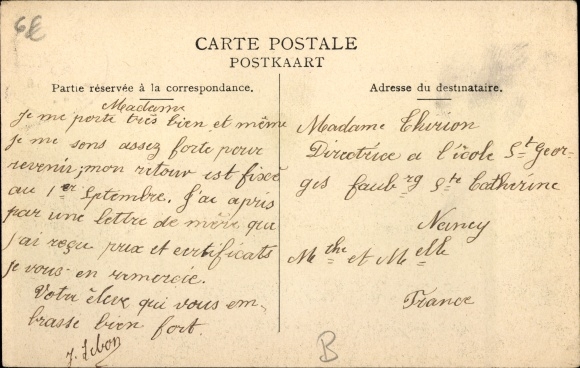 6€
CARTE POSTALE
POSTKAART
Partie réservée à la correspondance.
Madame
Je me porte très bien et même
je me sens assez forte pour
revenir; mon retour est fixée
au 1er Septembre. J'ai apris
par une lettre de mère que
j'ai reçu prix et certificats
je vous en remercie.
Votre élève qui vous em-
brasse bien fort.
J. Lebon
Adresse du destinataire.
Madame Thirion
Directrice a l'école St Geor-
ges faubrg Ste Catherine
Nancy
Mthe et Melle
France
B